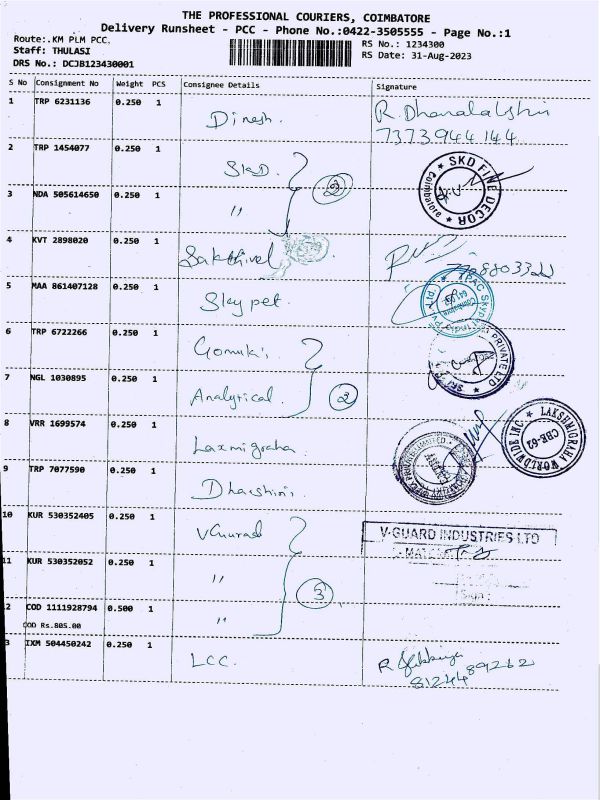 THE PROFESSIONAL COURIERS, COIMBATORE
Delivery Runsheet - PCC - Phone No.:0422-3505555 - Page No.:1
Route:.KM PLM PCC.
RS No.: 1234300
Staff: THULASI
RS Date: 31-Aug-2023
DRS No.: DCJB123430001
S No Consignment No Weight PCS Consignee Details Signature
1 TRP 6231136 0.250 1 Dinesh. R. Dhanalakshmi
7373944144
2 TRP 1454077 0.250 1 SKD. SKD FINE DECOR
Coimbatore
3 NDA 505614650 0.250 1 〃
4 KVT 2898020 0.250 1 Sakthivel
5 MAA 861407128 0.250 1 Sky pet.
6 TRP 6722266 0.250 1 Gomuki
7 NGL 1030895 0.250 1 Analytical. 2
8 VRR 1699574 0.250 1 Laxmigraha LAKSHMIGRAHA WORLDWIDE INC.
CBE-62
9 TRP 7077590 0.250 1 Dharshini
10 KUR 530352405 0.250 1 VGuard V-GUARD INDUSTRIES LTD
11 KUR 530352052 0.250 1 〃
3
2 COD 1111928794 0.500 1 〃
COD Rs.805.00
3 IXM 504450242 0.250 1 LCC.
8124489262